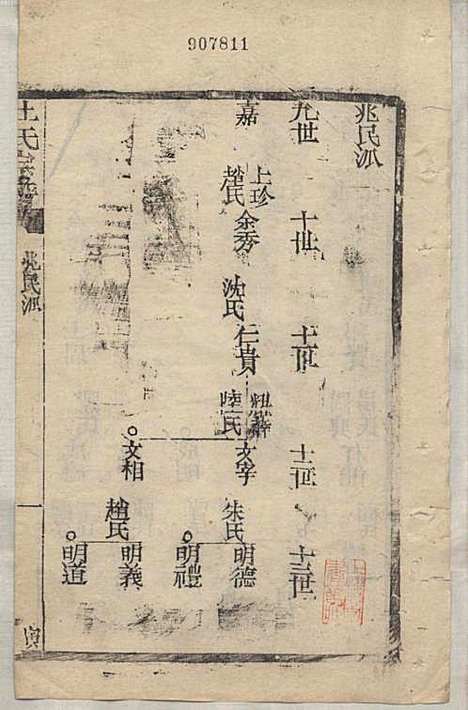 907811
兆民派
九世
十世
十一世
十二世
十三世
嘉
上珍
趙氏
余秀
沈氏
仁貴
陸氏
文宰
朱氏
明德
明禮
文相
趙氏
明義
明道
王氏宗
兆民派
一